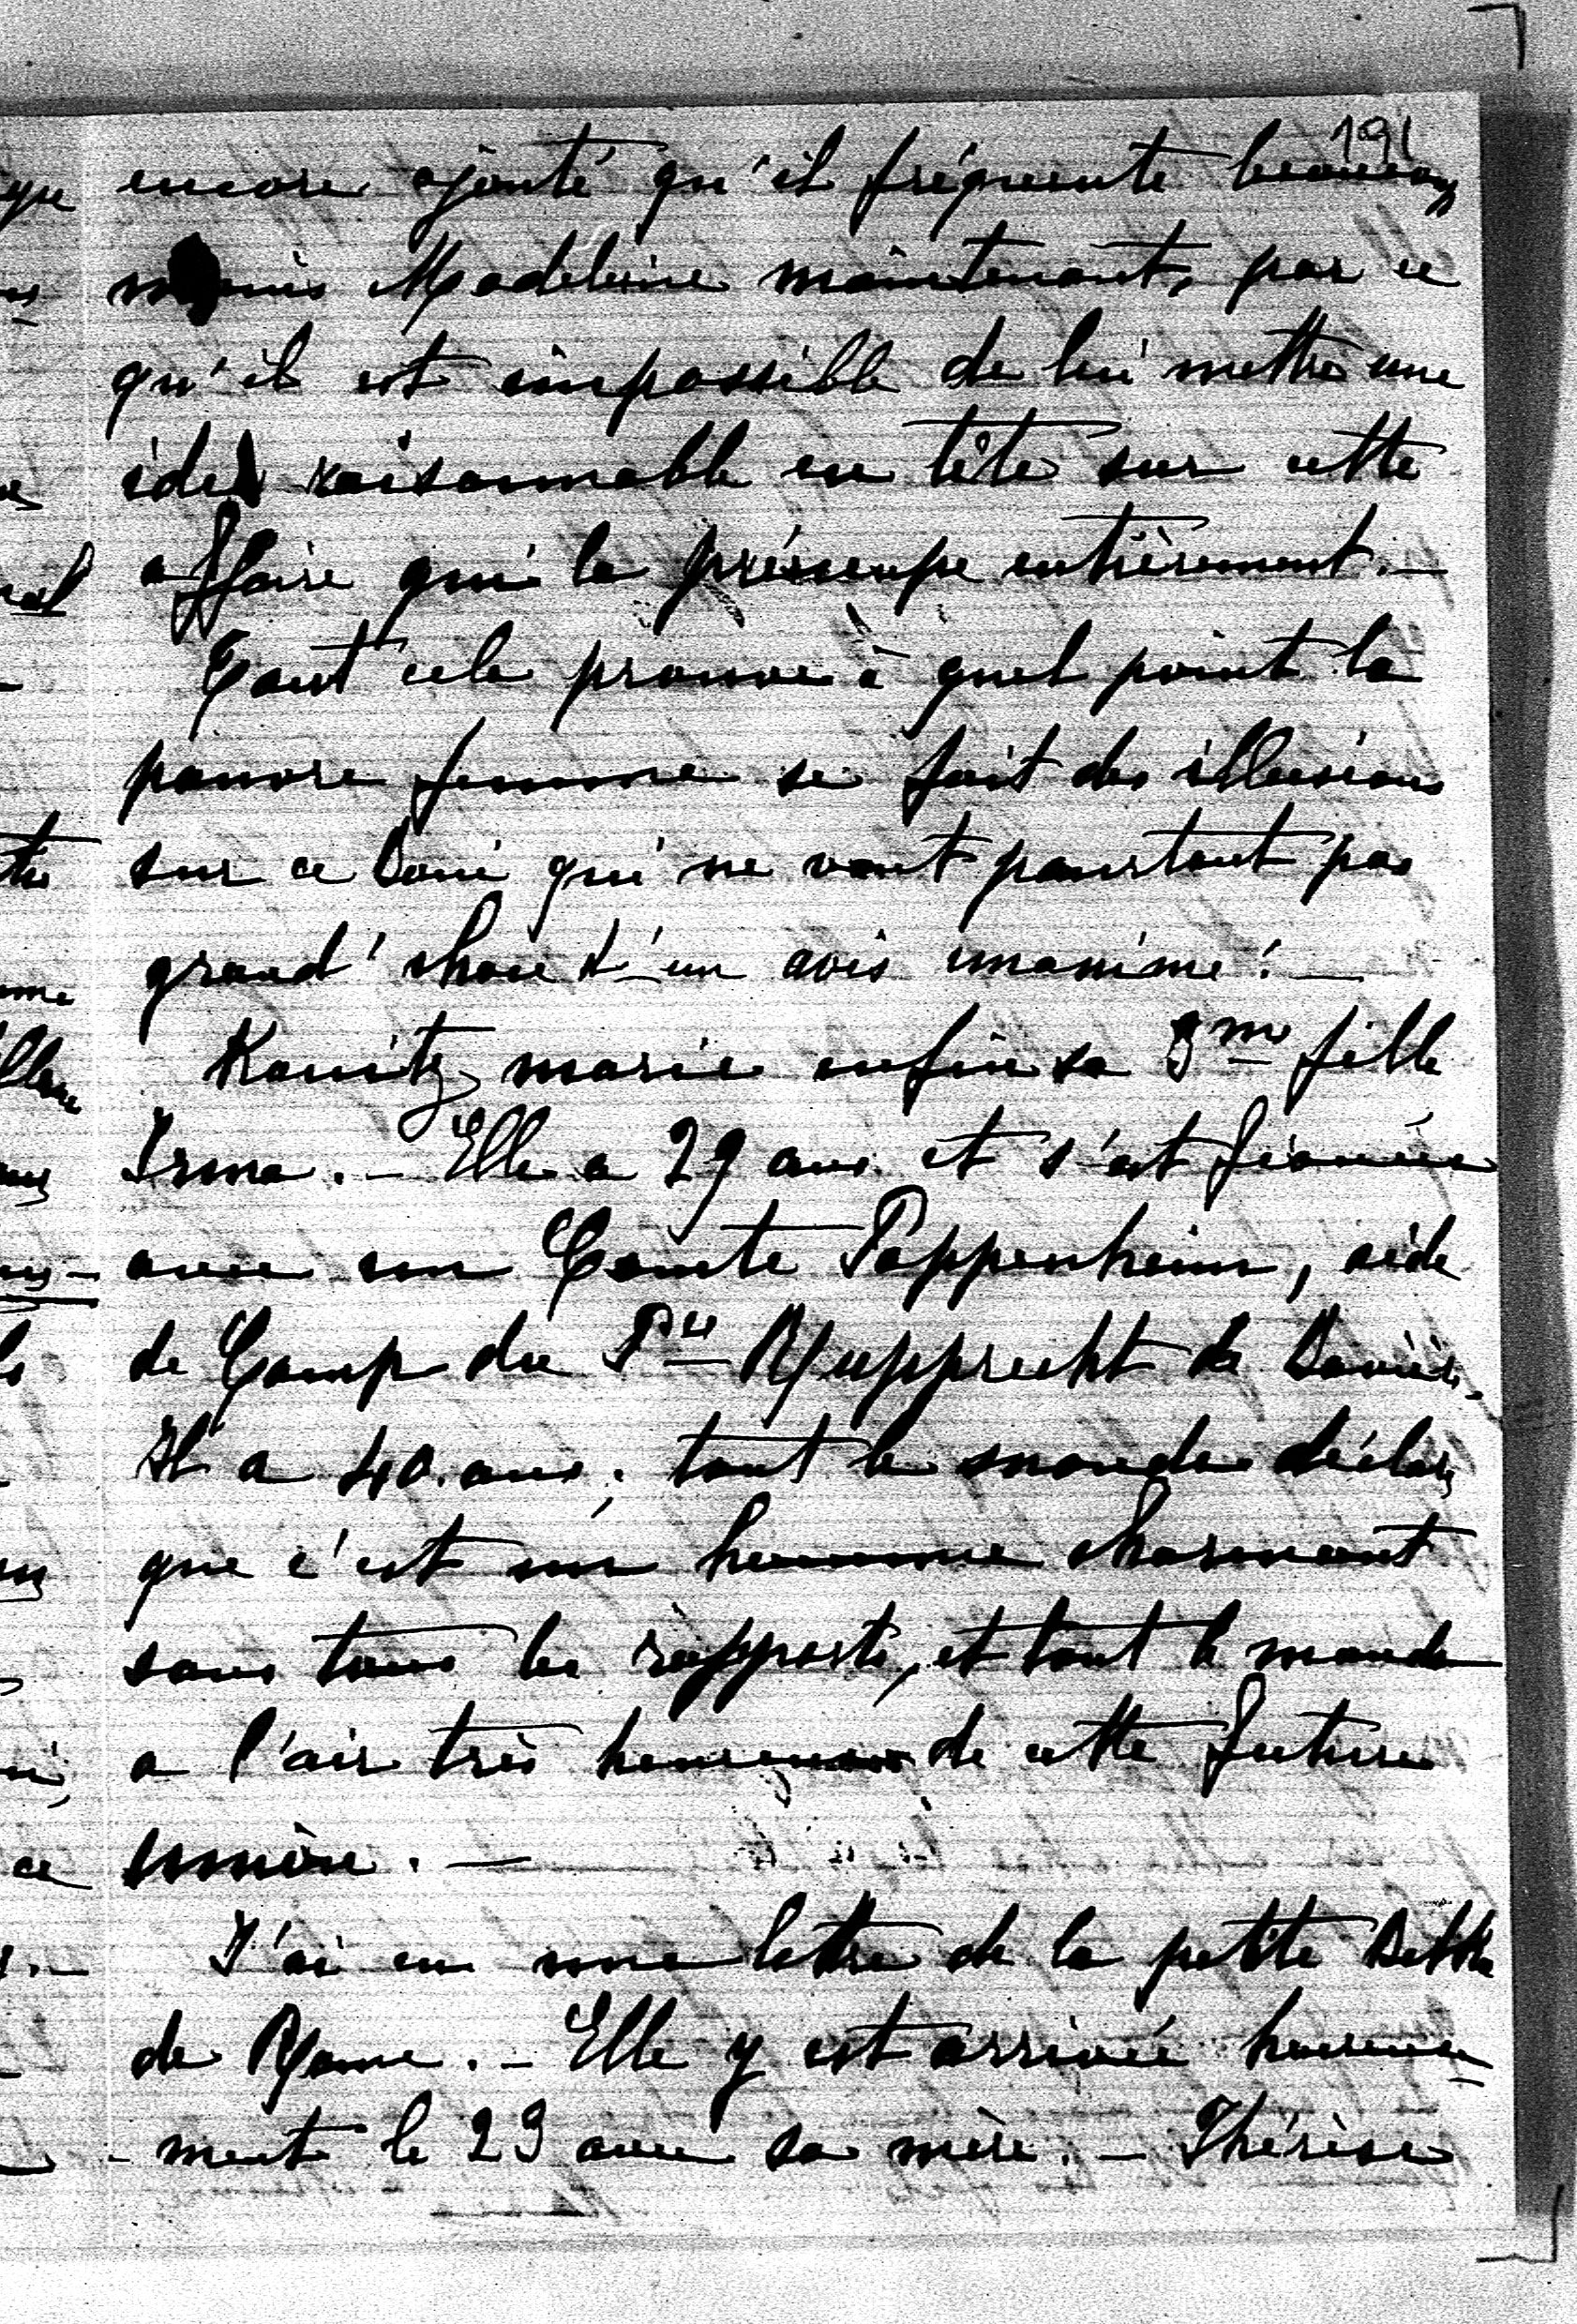 191
encore ajouté qu'il fréquente beaucoup
moins Madeleine maintenant, par ce
qu'il est impossible de lui mettre une
idée raisonnable en tête sur cette
affaire qui la préoccupe entièrement. —
Tout cela prouve à quel point la
pauvre femme se fait des illusions
sur ce Boni qui ne vaut pourtant pas
grand'chose d'un avis unanime! —
Kaunitz marie enfin sa 3me fille
Irma. — Elle a 29 ans et s'est fiancée
avec un Comte Pappenheim, aide
de Camp du Pce Rupprecht de Bavière.
Il a 40 ans; tout le monde déclare
que c'est un homme charmant
sous tous les rapports, et tout le monde
a l'air très heureux de cette future
union. —
J'ai eu une lettre de la petite
de Rome. — Elle y est arrivée heureuse-
-ment le 29 avec sa mère. — Thérèse